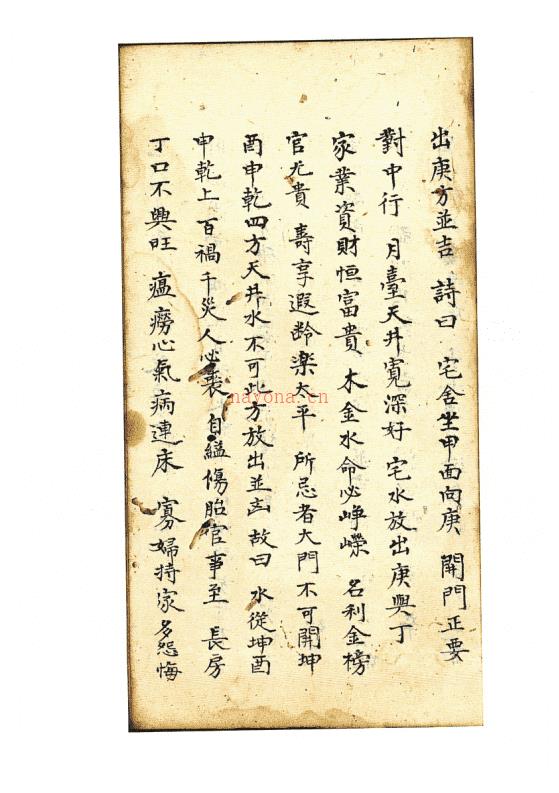 出庚方並吉 詩曰 宅舍坐甲面向庚 開門正要
對中行 月臺天井寬深好 宅水放出庚與丁
家業資財恒富貴 木金水命必崢嶸 名利金榜
官尤貴 壽享遐齡楽太平 所忌者大門不可開坤
酉申乾四方天井水不可此方放出並凶 故曰 水從坤酉
申乾上 百禍千災人必喪 自縊傷胎官事至 長房
丁口不興旺 瘟癆心氣病連床 寡婦持家多怨悔
nayona.cn